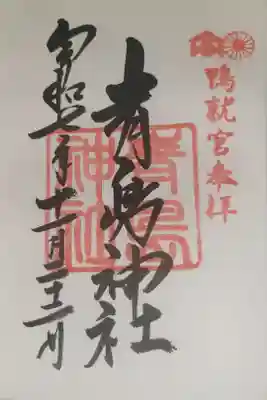 鴨就宮奉拝
青島神社
青島
神社
令和 年十一月二十 日